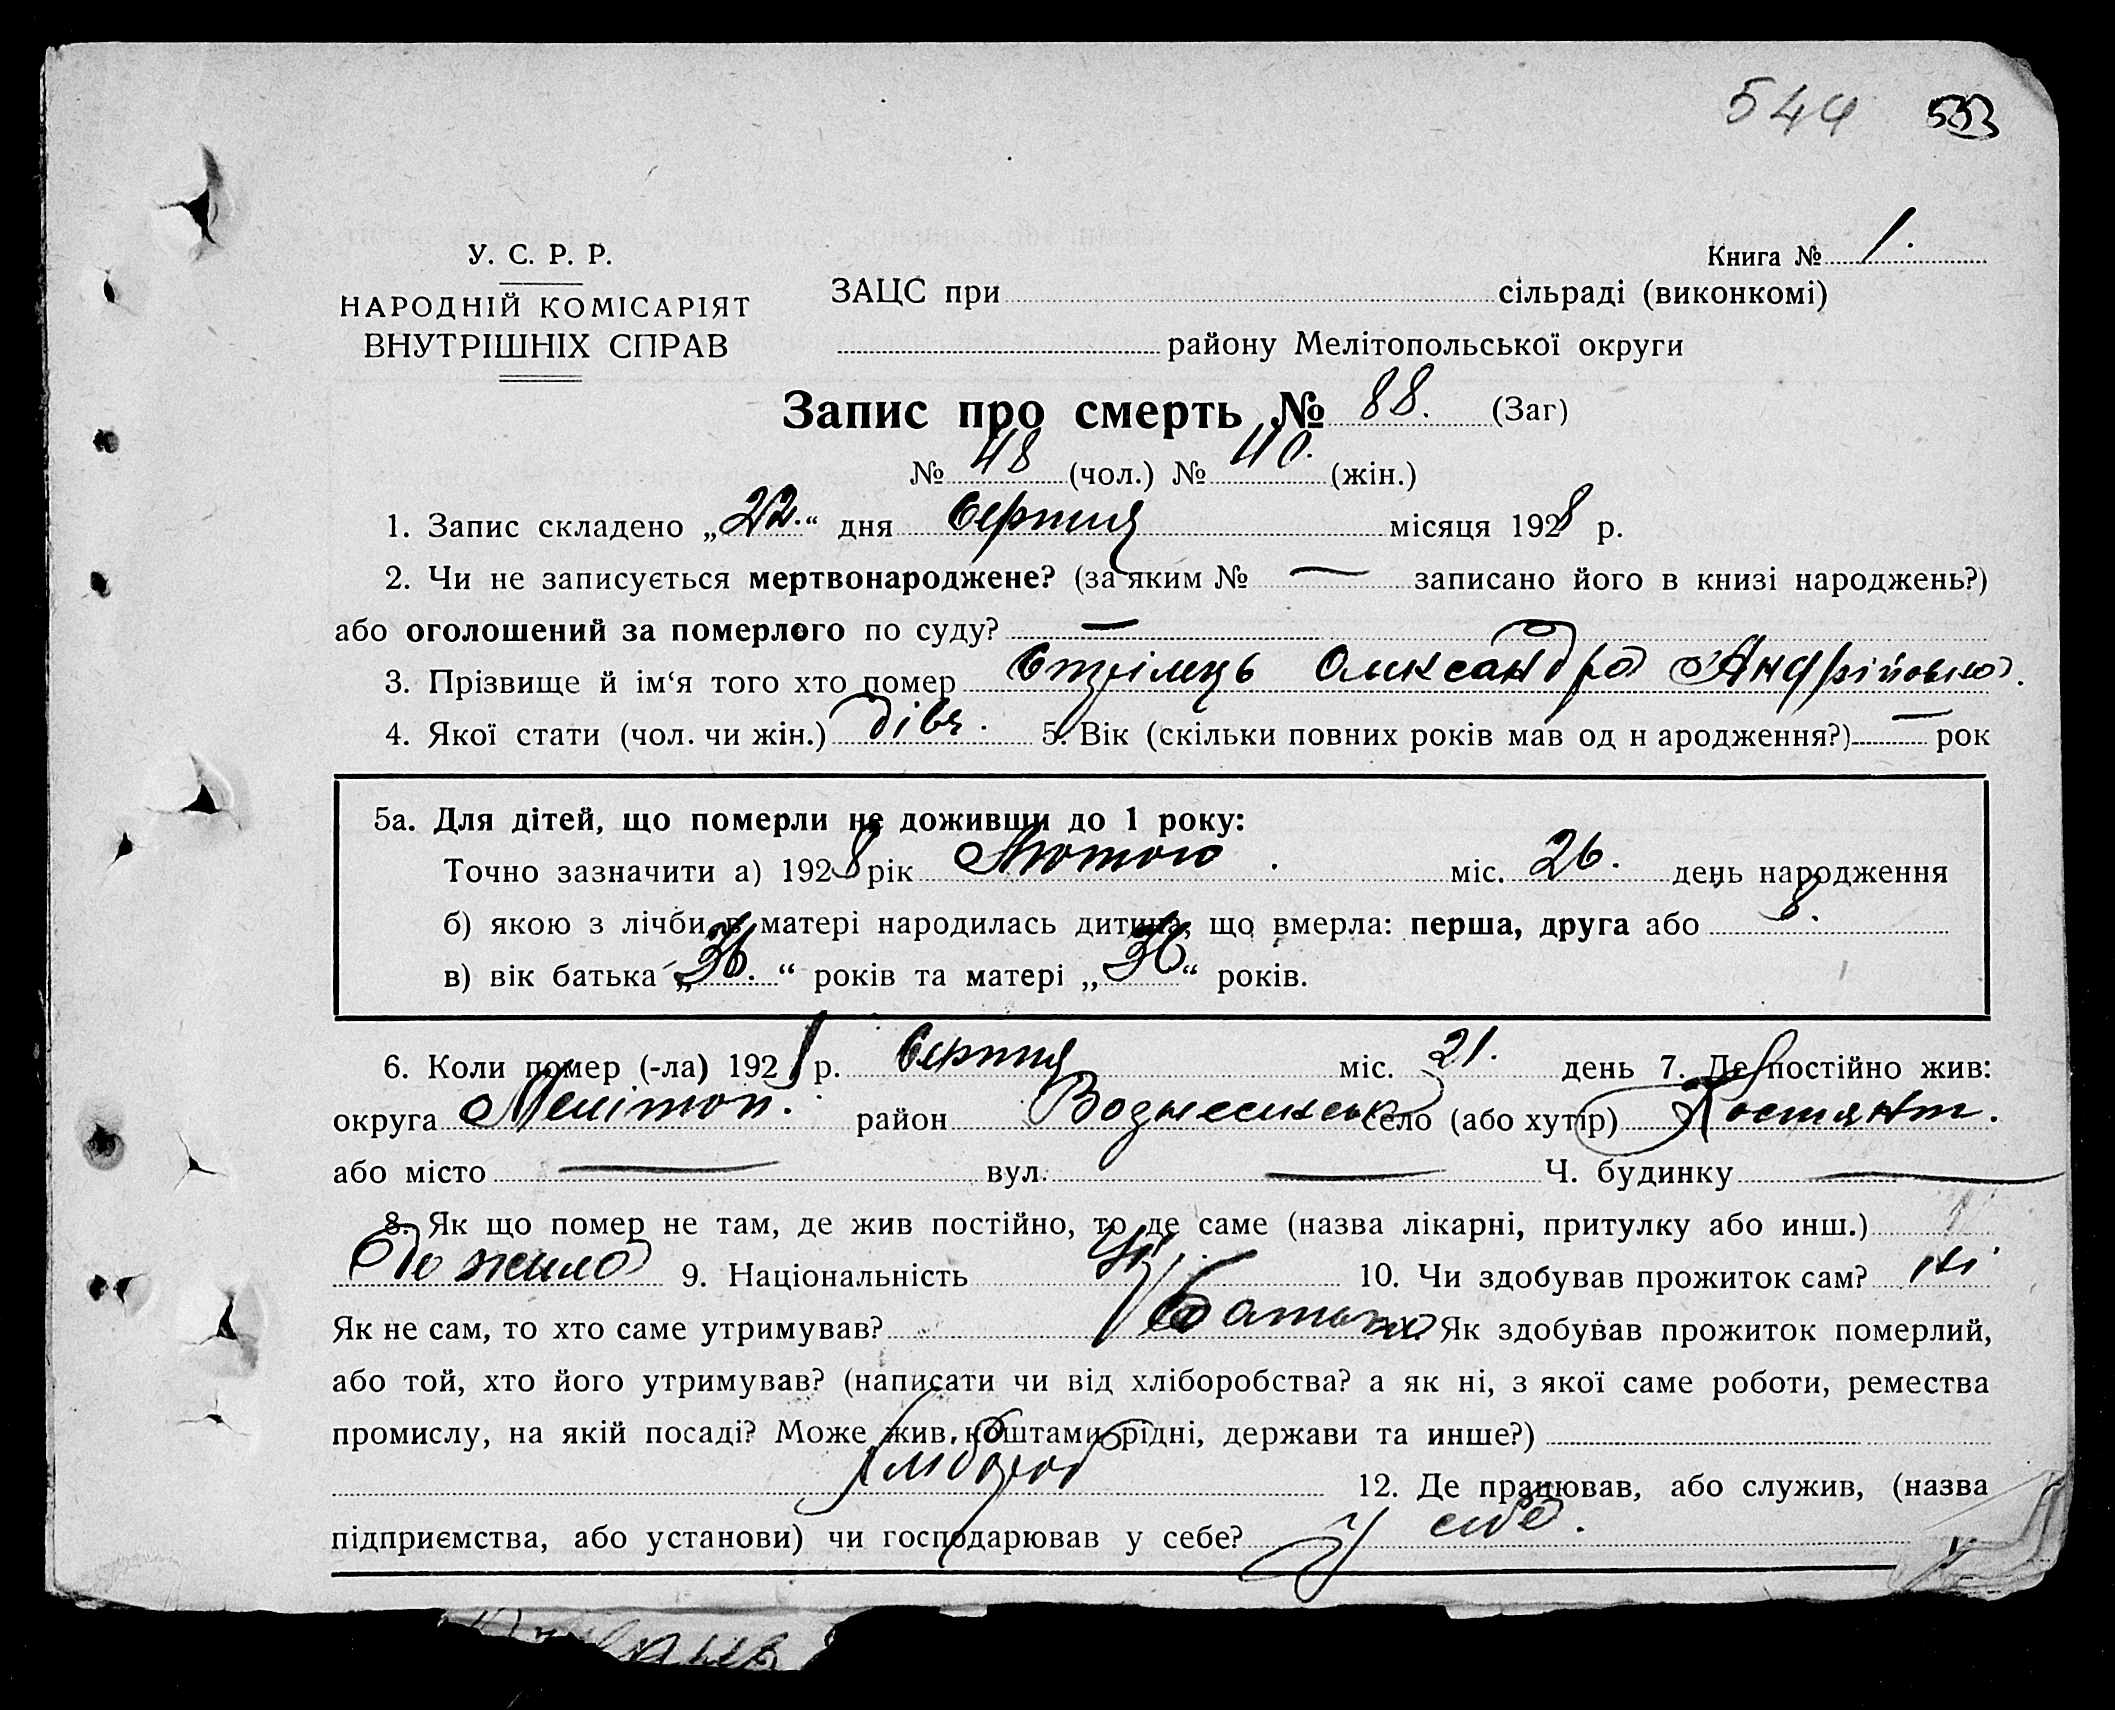 544 533
У. С. Р. Р.
Книга № 1.
НАРОДНІЙ КОМІСАРІЯТ
ВНУТРІШНІХ СПРАВ
ЗАЦС при сільраді (виконкомі)
району Мелітопольської округи
Запис про смерть № 88. (Заг)
№ 48 (чол.) № 40. (жін.)
1. Запис складено „22.“ дня Серпня місяця 1928 р.
2. Чи не записується мертвонароджене? (за яким № — записано його в книзі народжень?)
або оголошений за померлого по суду? —
3. Прізвище й ім‘я того хто помер Стрілець Олександра Андрійовна.
4. Якої стати (чол. чи жін.) дівч. 5. Вік (скільки повних років мав од н ародження?) — рок
5а. Для дітей, що померли не доживши до 1 року:
Точно зазначити а) 1928 рік Лютого міс. 26. день народження
б) якою з лічби в матері народилась дитина, що вмерла: перша, друга або 8.
в) вік батька „36.“ років та матері „36“ років.
6. Коли помер (-ла) 192 р. Серпня міс. 21. день 7. Де постійно жив:
округа Меліпоп. район Вознесенськ село (або хутір) Костянт.
або місто — вул. — Ч. будинку —
8. Як що помер не там, де жив постійно, то де саме (назва лікарні, притулку або инш.)
де жила 9. Національність Укр. 10. Чи здобував прожиток сам? ні
Як не сам, то хто саме утримував? Батько Як здобував прожиток померлий,
або той, хто його утримував? (написати чи від хліборобства? а як ні, з якої саме роботи, ремества
промислу, на якій посаді? Може жив, коштами рідні, держави та инше?)
Хлібороб 12. Де працював, або служив, (назва
підприємства, або установи) чи господарював у себе? У себе.